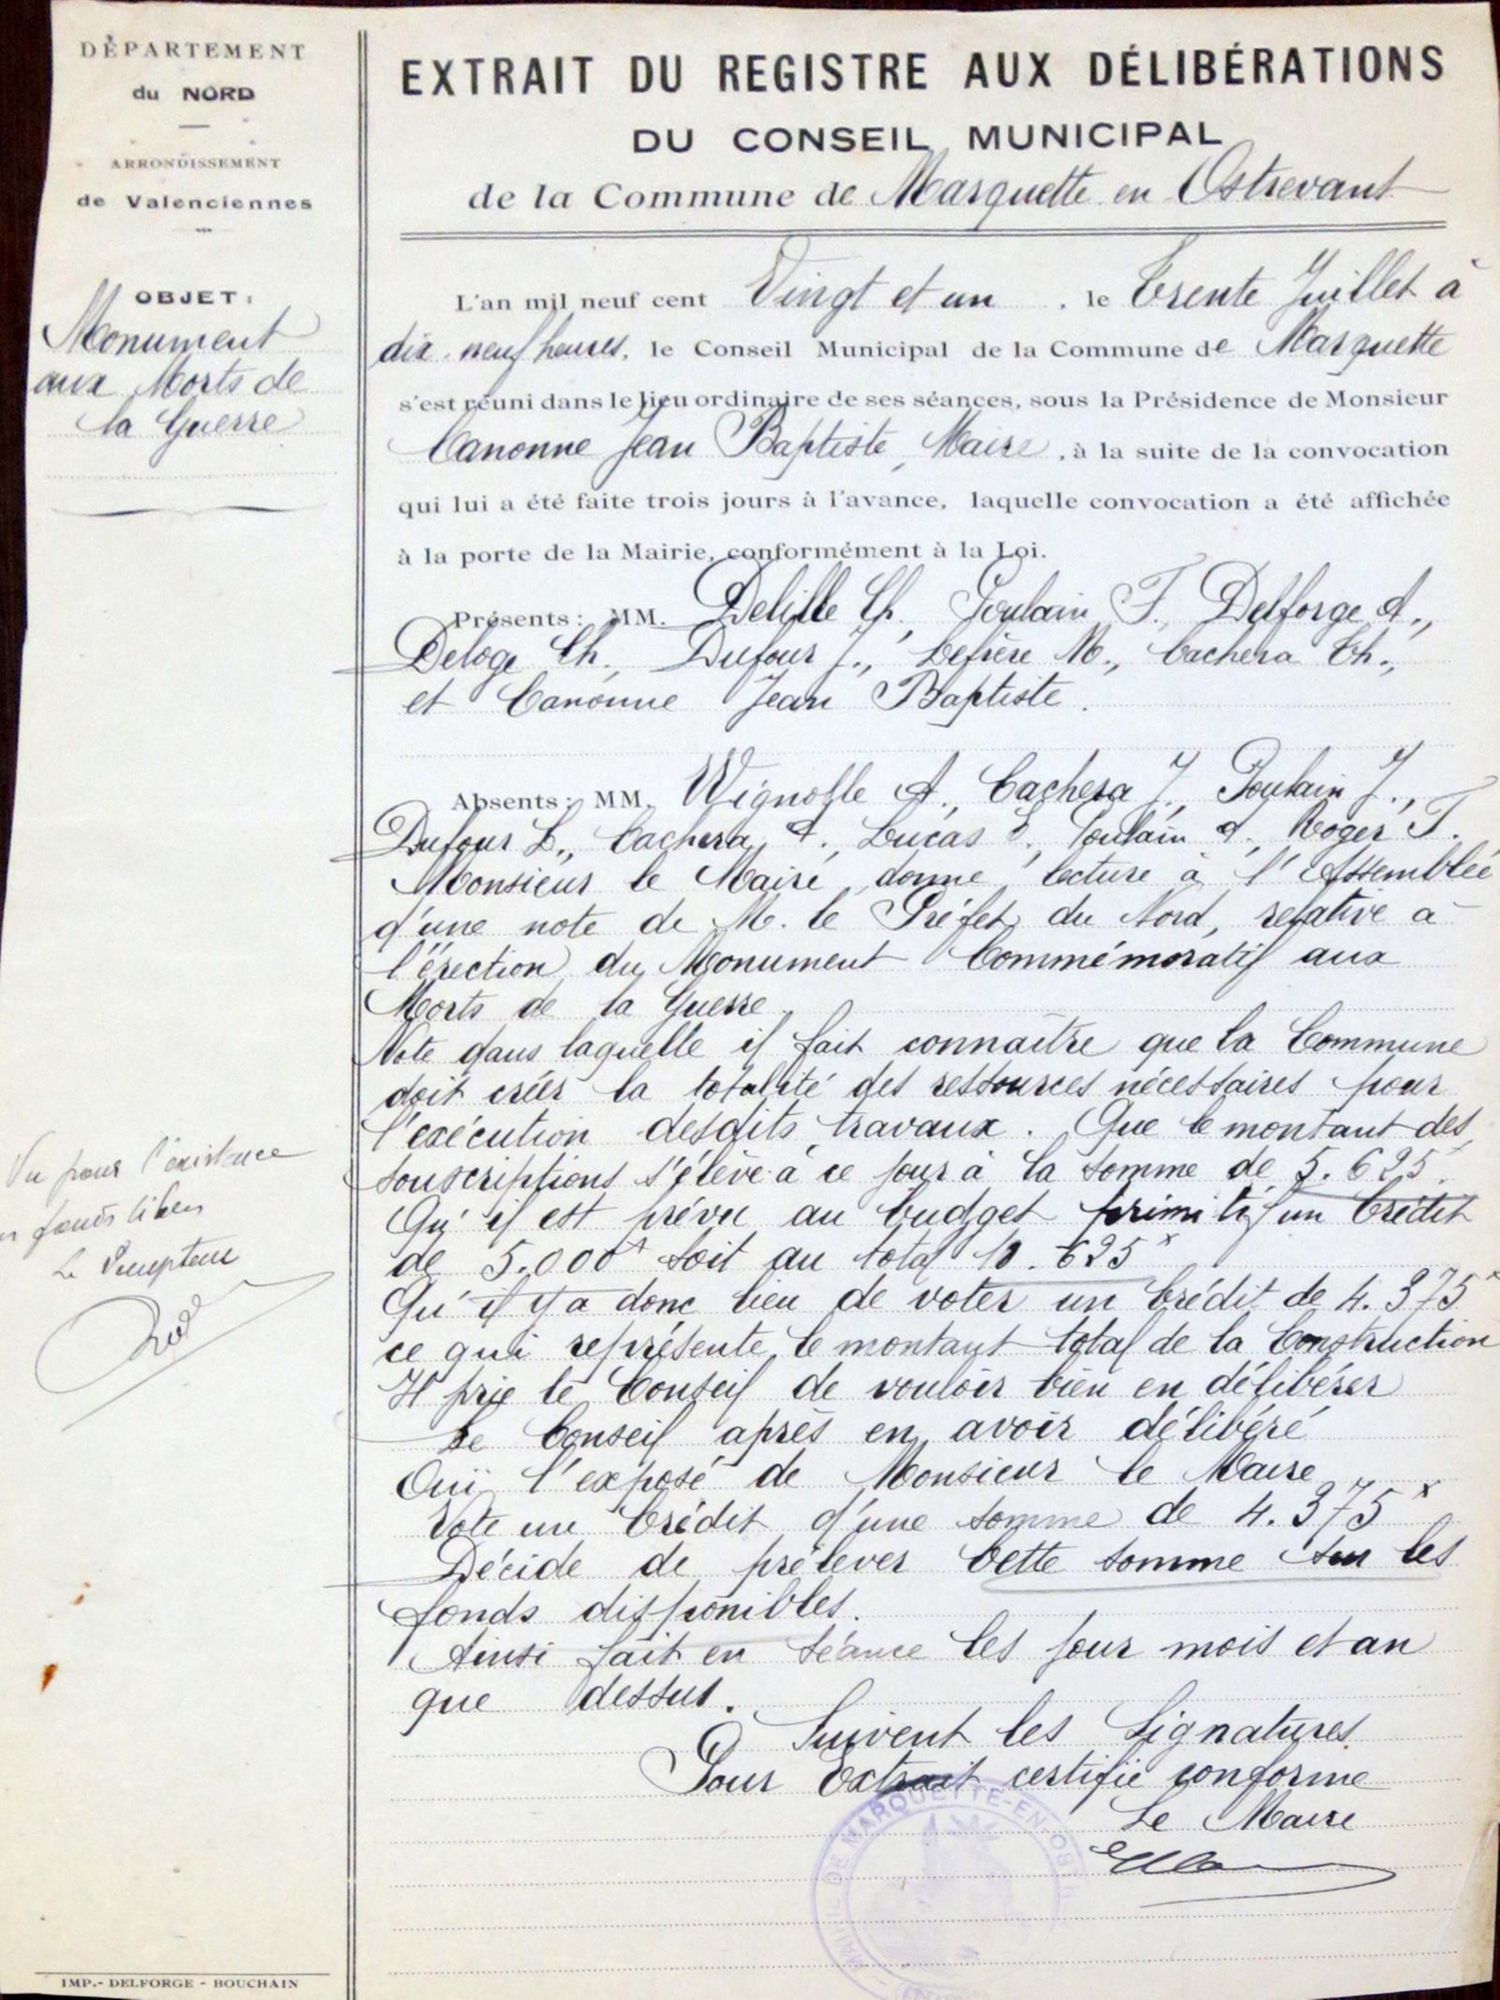 DÉPARTEMENT
du NORD
ARRONDISSEMENT
de Valenciennes
OBJET :
Monument
aux Morts de
la Guerre
Vu pour l'existence
fonds libres
Le Percepteur
IMP.- DELFORGE - BOUCHAIN
EXTRAIT DU REGISTRE AUX DÉLIBÉRATIONS
DU CONSEIL MUNICIPAL
de la Commune de Marquette en Ostrevant
L'an mil neuf cent Vingt et un . le Trente Juillet à
dix-neuf heures, le Conseil Municipal de la Commune de Marquette
s'est réuni dans le lieu ordinaire de ses séances, sous la Présidence de Monsieur
Canonne Jean Baptiste, Maire, à la suite de la convocation
qui lui a été faite trois jours à l'avance, laquelle convocation a été affichée
à la porte de la Mairie, conformément à la Loi.
Présents : MM. Delille Ch., Poulain F., Delforge A.,
Deloge Ch., Dufour J., Lefière M., Cachera Ch.,
et Canonne Jean Baptiste.
Absents : MM. Wignolle A., Cachera J., Poulain J.,
Dufour L., Cachera A., Lucas E., Poulain A., Roger T.
Monsieur le Maire donne lecture à l'Assemblée
d'une note de M. le Préfet du Nord, relative à
l'érection du Monument Commémoratif aux
Morts de la Guerre.
Note dans laquelle il fait connaître que la Commune
doit créer la totalité des ressources nécessaires pour
l'exécution desdits travaux. Que le montant des
souscriptions s'élève à ce jour à la somme de 5.625
Qu'il est prévu au budget primitif un Crédit
de 5.000 soit au total 10.625
Qu'il y a donc lieu de voter un Crédit de 4.375
ce qui représente le montant total de la Construction
Il prie le Conseil de vouloir bien en délibérer
Le Conseil après en avoir délibéré
Ouï l'exposé de Monsieur le Maire
Vote un Crédit d'une somme de 4.375
Décide de prélever Cette somme sur les
fonds disponibles.
Ainsi fait en séance les jour mois et an
que dessus.
Suivent les Signatures
Pour Extrait certifié conforme
Le Maire
MAIRIE DE MARQUETTE-EN-OST